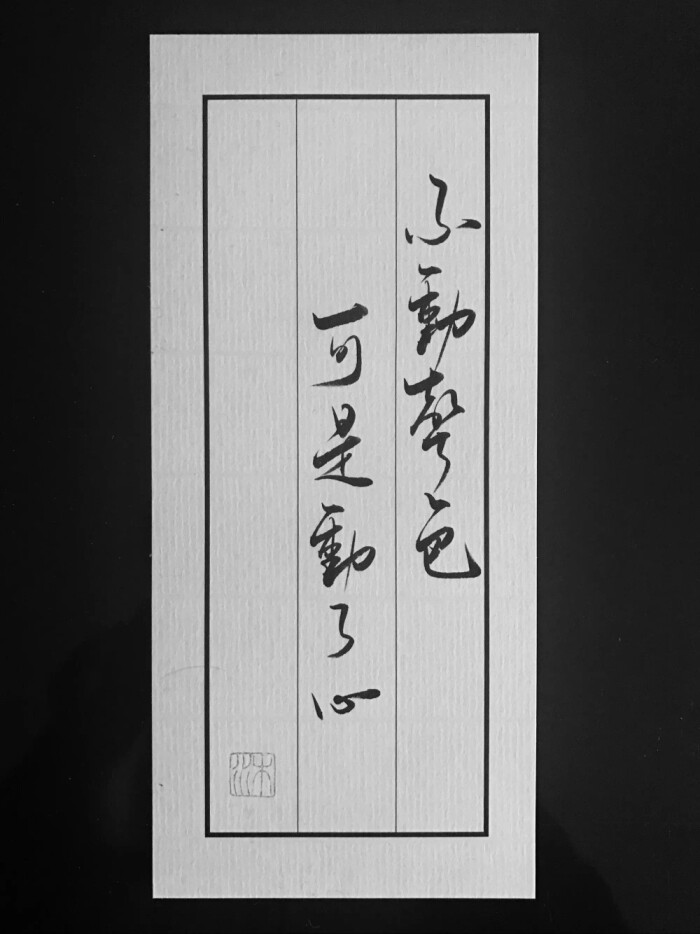 不動聲色
可是動了心